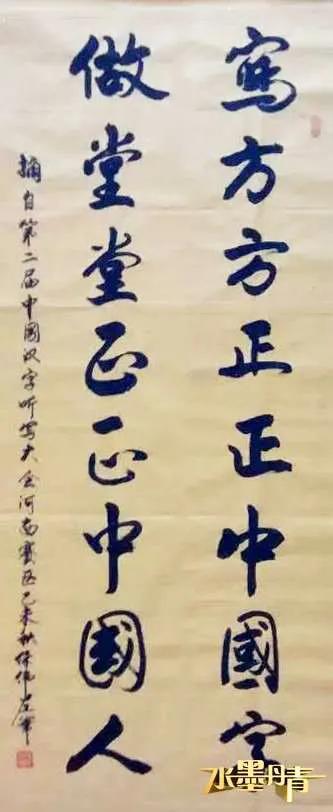 寫方方正正中國字
做堂堂正正中國人
摘自第二届中國汉字听写大会河南赛区乙未秋 左筆
水墨丹青